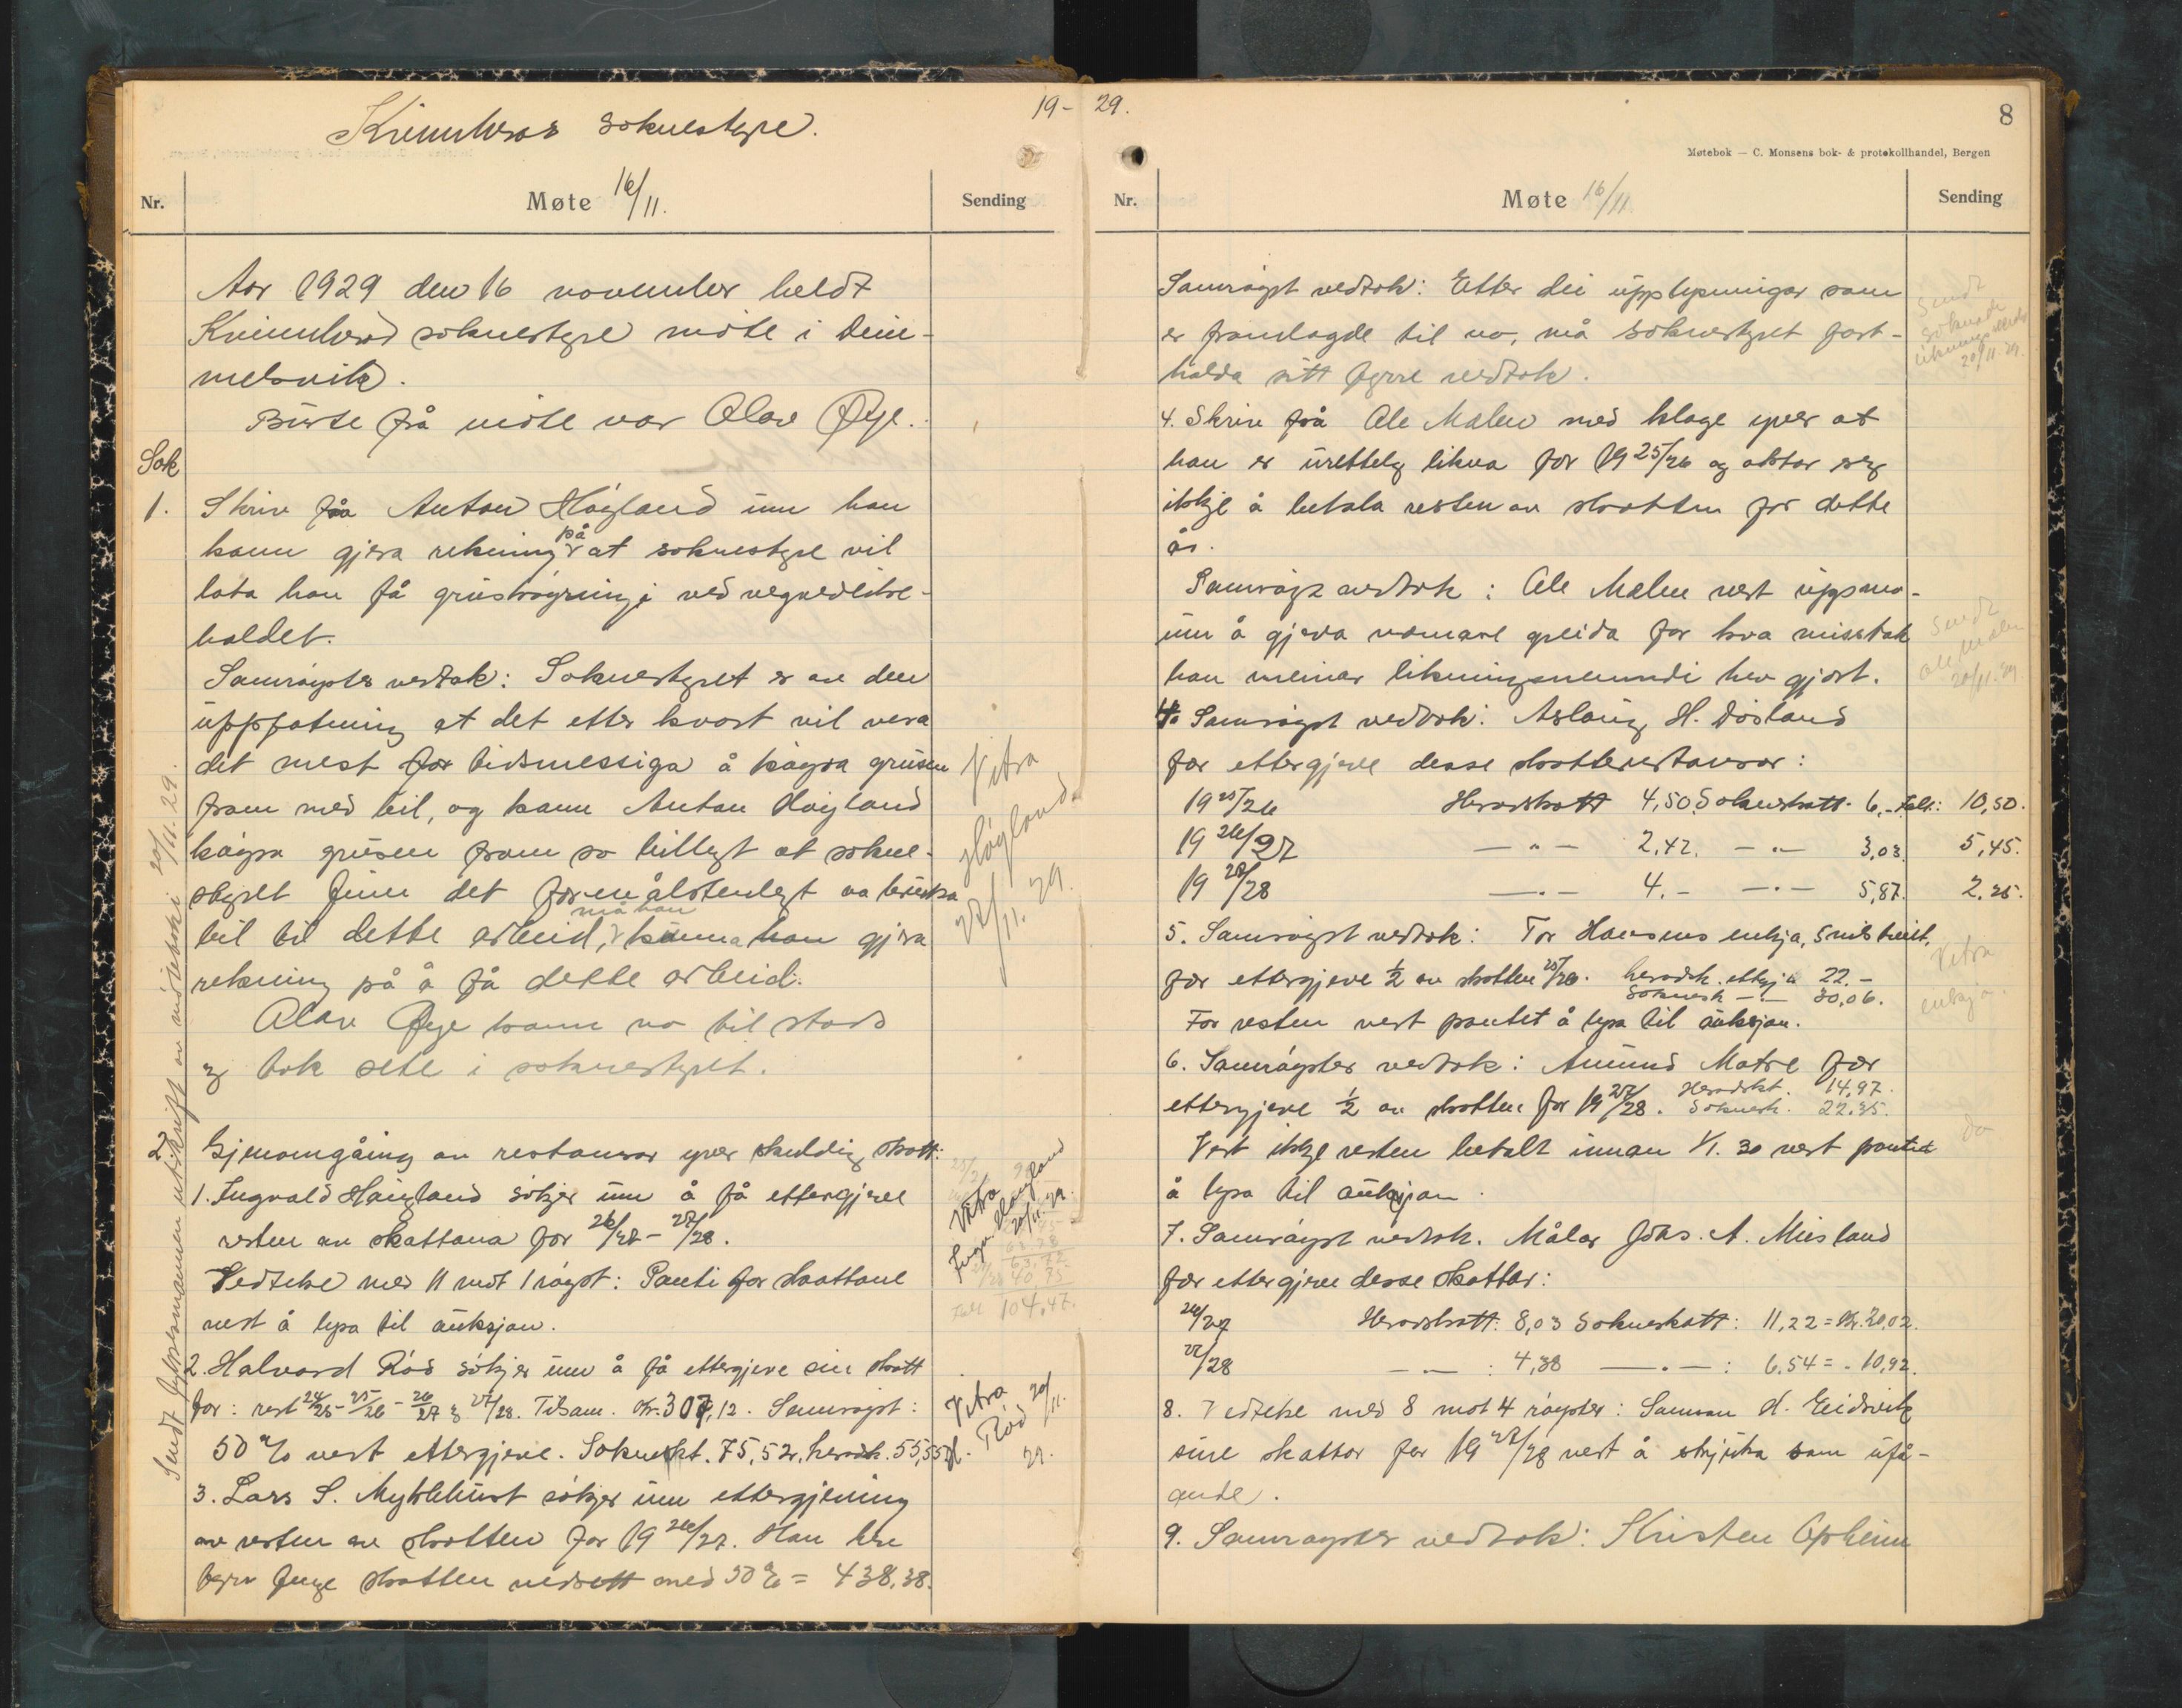 Kvinnherad soknestyre.
19-
Nr.
Møte 16/11.
Sending
Aar 1929 den 16 november heldt
Kvinnherad soknestyre møte i Dim-
melsvik.
Burte frå møte var Olav Øye.
Sak
1. Skriv fra Anton Høgland um han
kann gjera rekning på at soknestyre vil
lata han få gruskøyringi ved vegvedlike-
haldet.
Samrøystes vedtak: Soknestyret er av den
uppfatning at det etter kvart vil vera
det mest for tidsmessiga å køyra grusen
fram med bil, og kann Anton Høyland
køyra grusen fram so billegt at sokne-
styret finn det formålstenlegt aa bruka
bil til dette arbeid, må han kunna han gjera
rekning på å få dette arbeid.
Vitra
Høgland
27/11. 29.
Olav Øye kann no til stads
og tok sete i soknestyret.
2. Gjenomgåing av restansar yver skuldig skatt:
1. Ingvald Høigland søkjer um å få ettergjeve
resten av skattana for 26/27 - 27/28.
Vedteke med 11 mot 1 røyst: Panti for skattane
vert å lysa til auksjon.
Vitra
Ingv. Høigland
20/11. 29.
104,47.
2. Halvard Rød søkjer um å få ettergjeve sin skatt
for: rest 24/25 - 25/26 - 26/27 & 27/28. Tilsam. kr. 307,12. Samrøyst:
50 % vert ettergjeve. Sokneskt. 75,52. heradsk. 55,55
Vitra
Rød 20/11.
29.
3. Lars S. Myklebust søkjer um ettergjeving
av resten av skatten for 19 26/27. Han hev
fyrr fenge skatten nedsett med 50 % = 438,38.
Sendt fylkesmannen utskrift av møteboki 20/11. 29.
29.
8
Møtebok — C. Monsens bok- & protokollhandel, Bergen
Nr.
Møte 16/11
Sending
Samrøyst vedtak: Etter dei upplysningar som
er framlagde til no, må soknestyret fast-
halda sitt fyrre vedtak.
Sendt
20/11. 29.
4. Skriv frå Ole Malen med klage yver at
han er urettelg likna for 19 25/26 og aktar seg
ikkje å betala resten av skatten for dette
år.
Samrøyst vedtak: Ole Malen vert uppmo-
um å gjeva nærmare greida for kva misstak
han meinar likningsnemndi hev gjort.
Sendt
Ole Malen
20/11. 29
4. Samrøyst vedtak: Aslaug H. Døsland
fær ettergjeve desse skatterestansar:
19 25/26 Heradskatt 4,50. Sokneskatt 6,- Tals: 10,50.
19 26/27 — " — 2,42. — " — 3,03. 5,45.
19 28/28 — " — 4.- — " — 5,87. 2.25.
5. Samrøyst vedtak: Tor Hansens enkja, Snilstveit,
fær ettergjeve ½ av skatten 25/26. heradsk. ettergj. 22.-
Soknesk — " — 30,06.
For resten vert pantet å lysa til auksjon.
Vitra
enkja.
6. Samrøystes vedtak: Amund Matre fær
ettergjeve ½ av skatten for 19 27/28. Heradskt. 14,97.
Soknesk. 22.35.
Vert ikkje resten betalt innan 1/1. 30 vert pantet
å lysa til auksjon.
do
7. Samrøyst vedtak. Målar Johs. A. Miesland
fær ettergjeve desse skattar:
26/27 Heradskatt: 8,03 Sokneskatt: 11,22 = Kr. 20,02.
27/28 — " — : 4,38 — " — : 6.54 = - 10,92.
8. Vedteke med 8 mot 4 røyster: Samson H. Eidsvik
sine skattar for 19 27/28 vert å stryka som ufå-
ande.
9. Samrøystes vedtak: Kristen Opheim